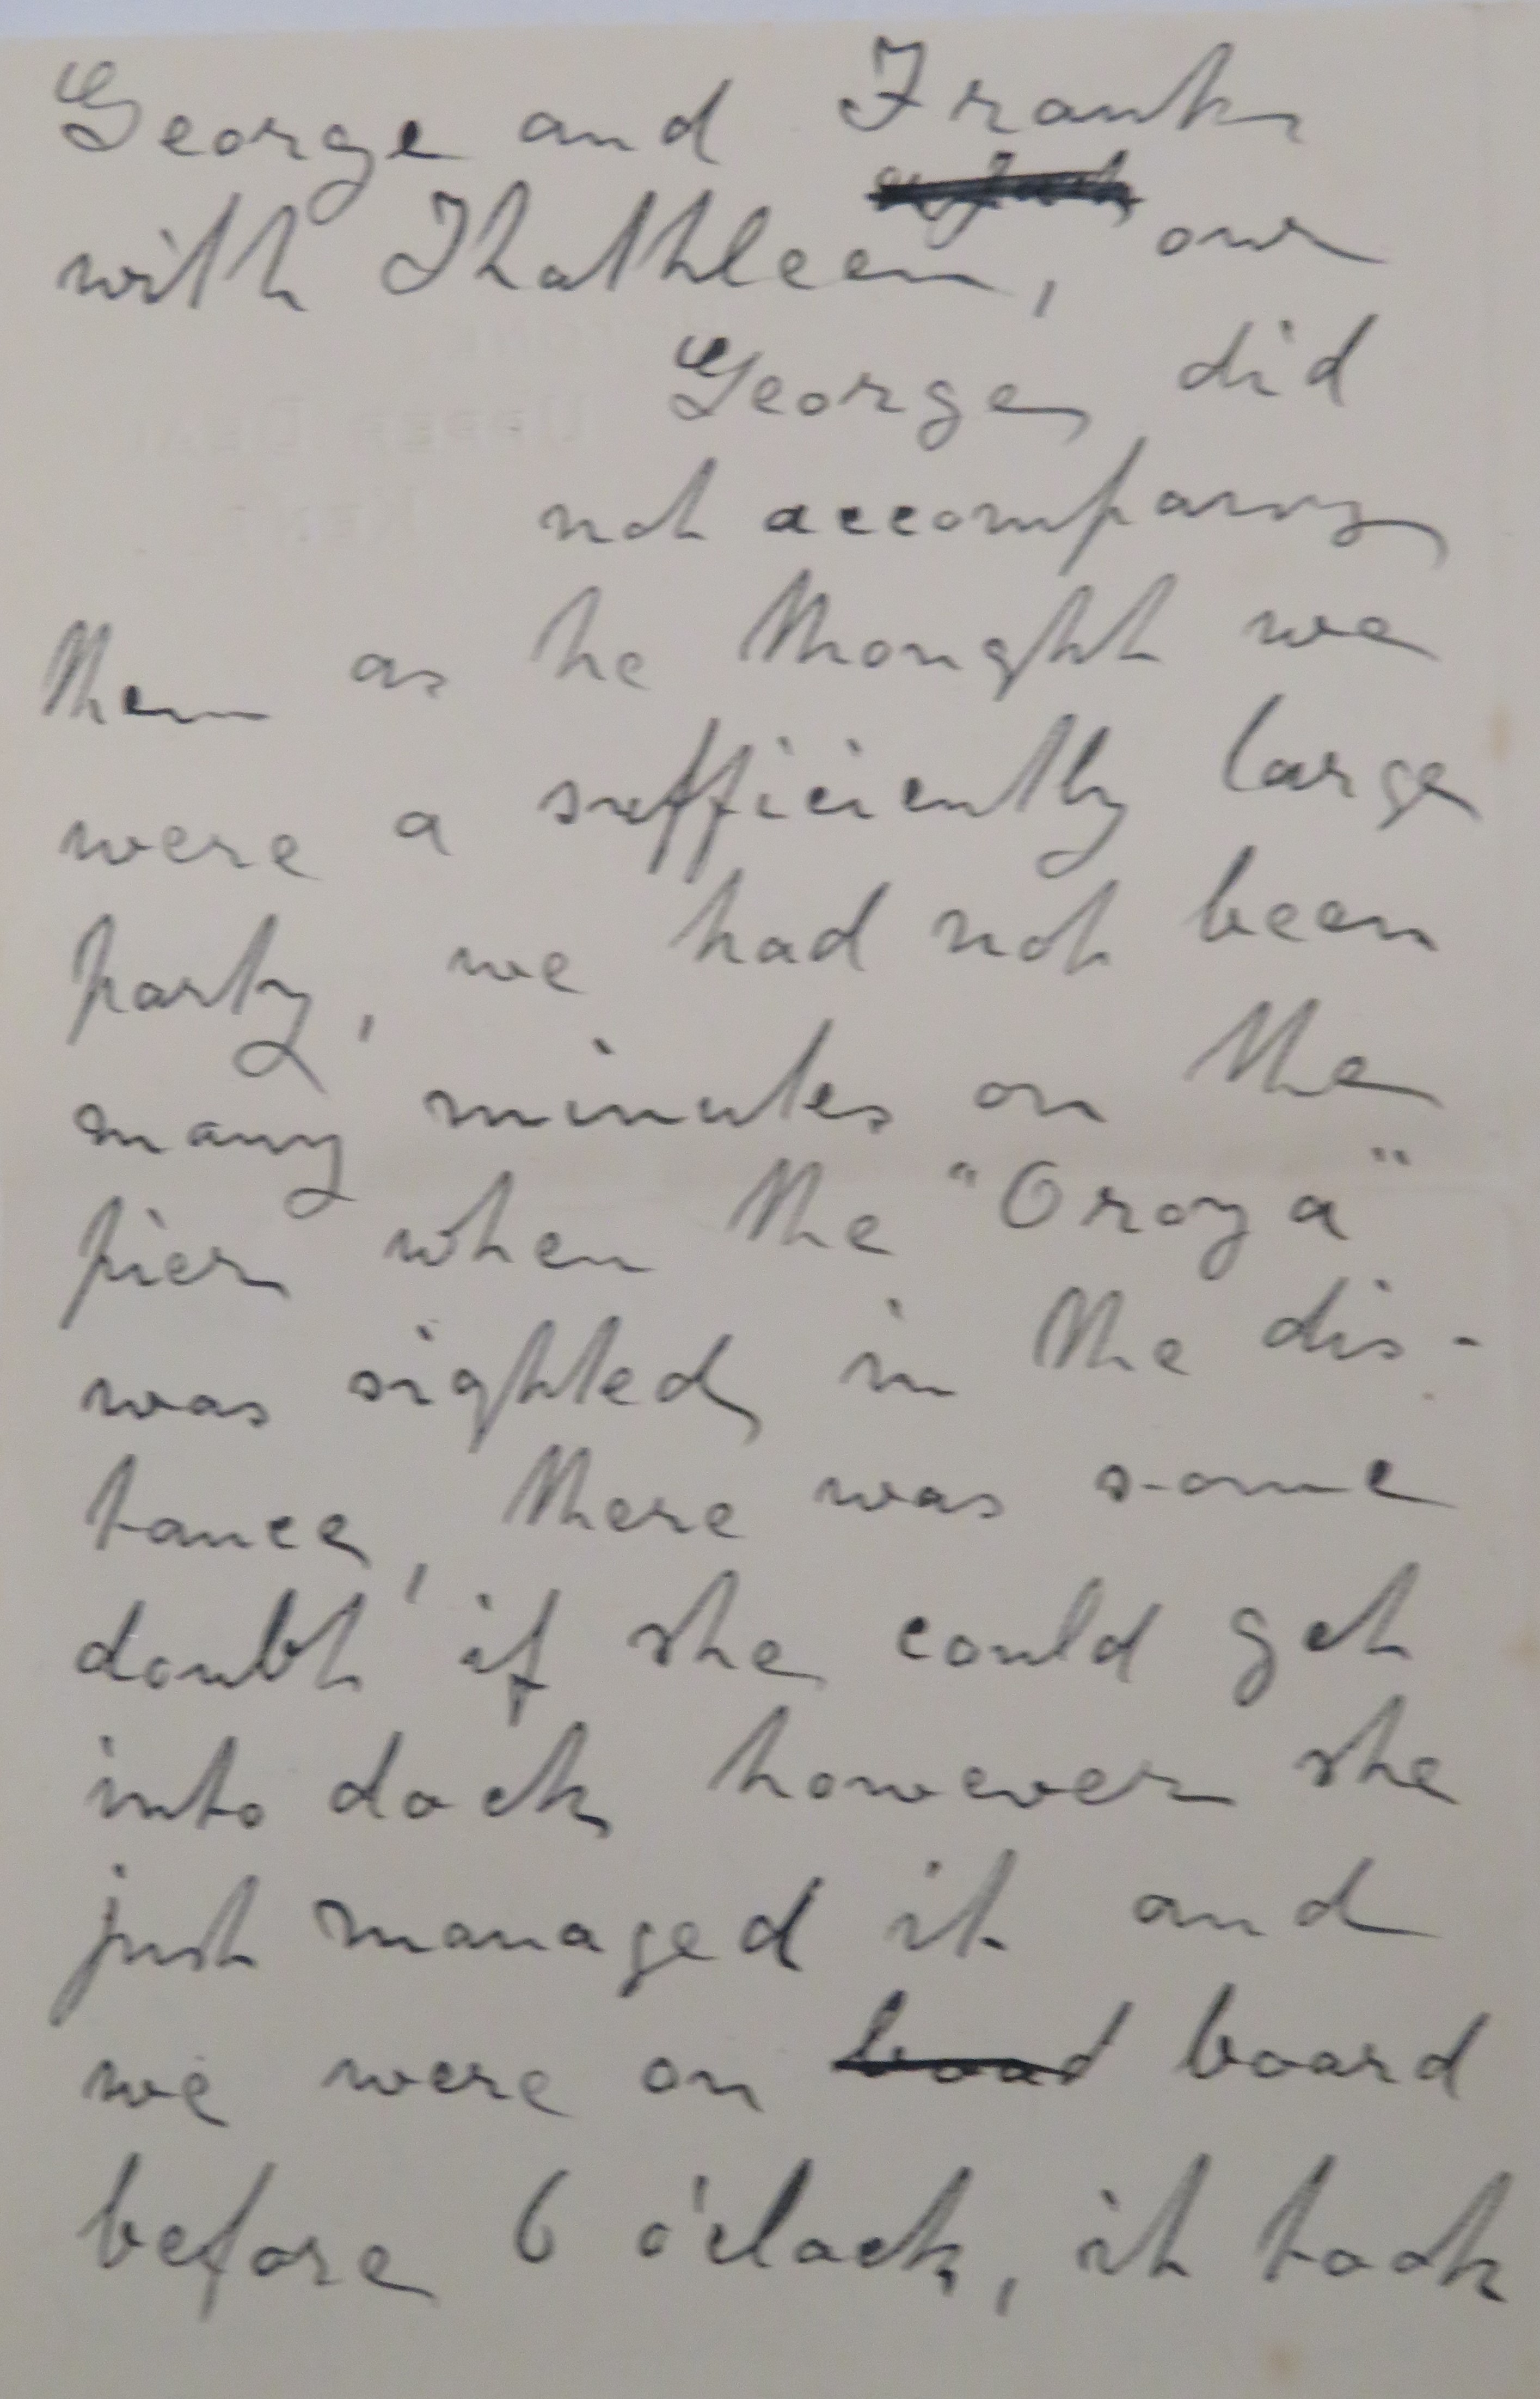 George and Frank
with Kathleen, our
George, did
not accompany
them as he thought we
were a sufficiently large
party, we had not been
many minutes on the
pier when the "Oroya"
was sighted, in the dis-
tance, there was some
doubt if she could get
into dock however she
just managed it and
we were on boad board
before 6 o'clock, it took